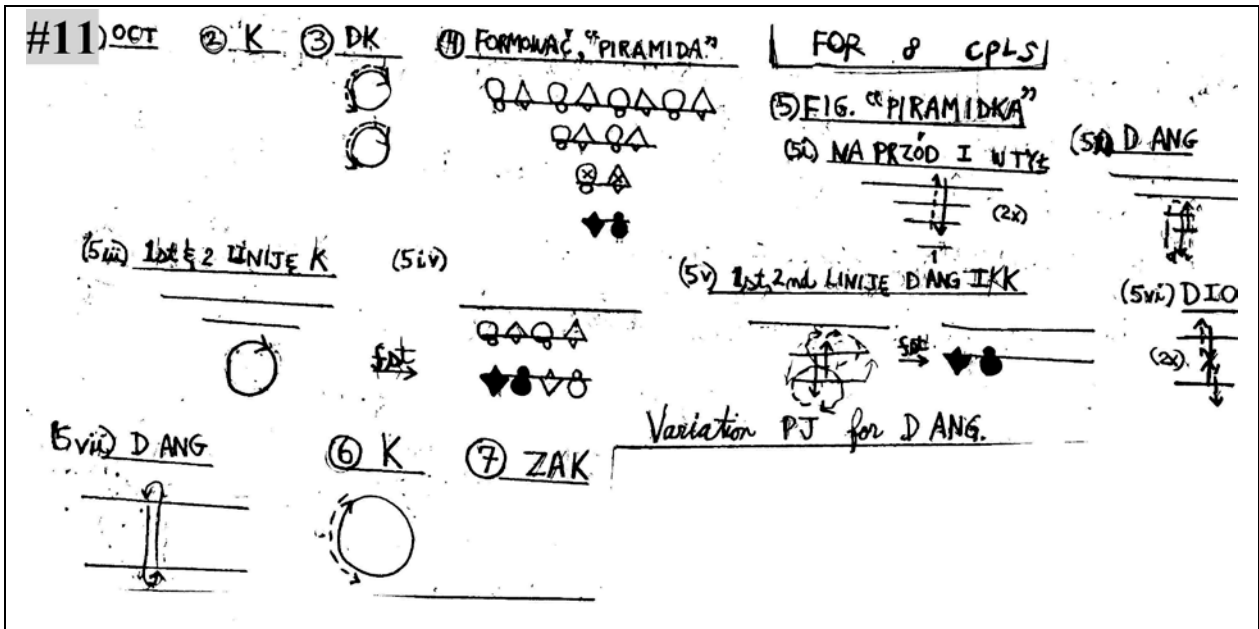 #11) OCT ② K ③ DK ④ FORMOWAĆ, "PIRAMIDA" FOR 8 CPLS
(5) FIG. "PIRAMIDKA"
(5i) NAPRZÓD I W TYŁ
(2x)
D ANG
(5iii) 1st & 2 LINIJĘ K
(5iv)
fst
(5v) 1st, 2nd LINIJĘ D ANG I KK
(5vi) DIO
(2x)
(5vii) D ANG
⑥ K
⑦ ZAK
Variation PJ for D ANG.